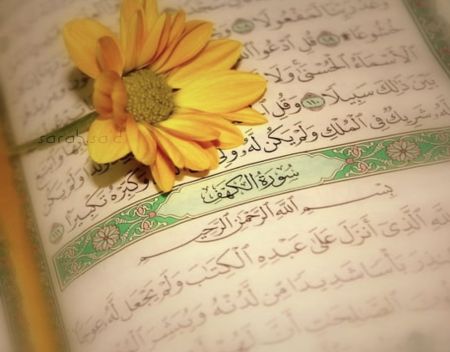 وَعْدُ رَبِّنَا لَمَفْعُولًا
خُشُوعًا ۩ ١٠٩ قُلِ ٱدْعُوا۟
ٱلْأَسْمَآءُ ٱلْحُسْنَىٰ وَلَا
بَيْنَ ذَٰلِكَ سَبِيلًا ١١٠ وَقُلِ
وَلَمْ يَكُن
لَّهُۥ شَرِيكٌ فِى ٱلْمُلْكِ وَلَمْ يَكُن لَّهُۥ وَلِىٌّ
وَكَبِّرْهُ تَكْبِيرًا ١١١
سُورَةُ الْكَهْفِ
بِسْمِ ٱللَّهِ ٱلرَّحْمَٰنِ ٱلرَّحِيمِ
لِلَّهِ ٱلَّذِىٓ أَنزَلَ عَلَىٰ عَبْدِهِ ٱلْكِتَٰبَ وَلَمْ يَجْعَل لَّهُۥ عِوَجَا
بَأْسًا شَدِيدًا مِّن لَّدُنْهُ وَيُبَشِّرَ
ٱلصَّٰلِحَٰتِ أَنَّ لَهُمْ